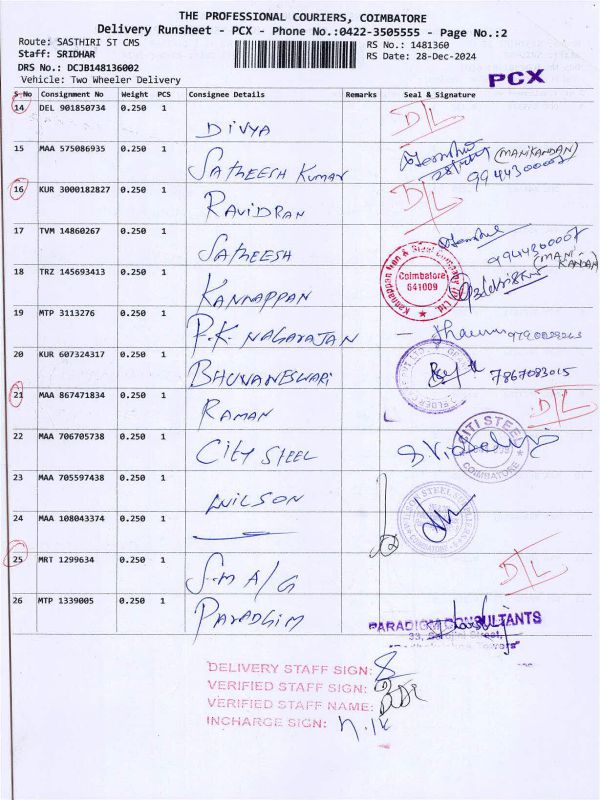 THE PROFESSIONAL COURIERS, COIMBATORE
Delivery Runsheet - PCX - Phone No.:0422-3505555 - Page No.:2
Route: SASTHIRI ST CMS RS No.: 1481360
Staff: SRIDHAR RS Date: 28-Dec-2024
DRS No.: DCJB148136002
Vehicle: Two Wheeler Delivery PCX
S.No Consignment No Weight PCS Consignee Details Remarks Seal & Signature
14 DEL 901850734 0.250 1 DIVYA D/L
15 MAA 575086935 0.250 1 SATHEESH KUMAR (MANIKANDAN)
9944300007
16 KUR 3000182827 0.250 1 RAVIDRAN D/L
17 TVM 14860267 0.250 1 SATHEESH 9944300007
(MANIKANDAN)
18 TRZ 145693413 0.250 1 KANNAPPAN Kannappan Iron & Steel Company (P) Ltd. Coimbatore 641009
19 MTP 3113276 0.250 1 P.K. NAGARAJAN
20 KUR 607324317 0.250 1 BHUVANESWARI 7867083015
21 MAA 867471834 0.250 1 RAMAN D/L
22 MAA 706705738 0.250 1 CITY STEEL SITI STEEL COIMBATORE
23 MAA 705597438 0.250 1 WILSON
24 MAA 108043374 0.250 1 COIMBATORE
25 MRT 1299634 0.250 1 S.M A/G D/L
26 MTP 1339005 0.250 1 PARADGIM PARADIGM CONSULTANTS
DELIVERY STAFF SIGN:
VERIFIED STAFF SIGN:
VERIFIED STAFF NAME:
INCHARGE SIGN: